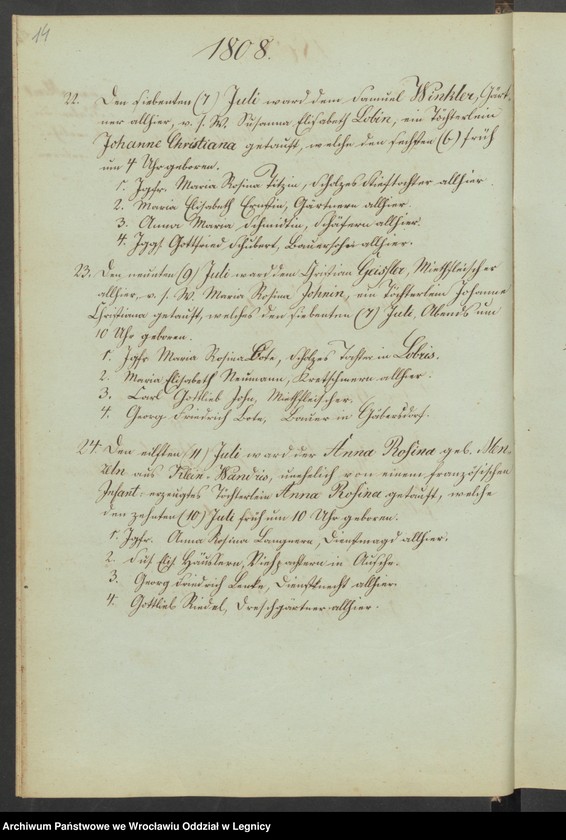 14
1808.
22. Den siebenten (7) Juli ward dem Samuel Winkler, Gärt-
ner allhier, v. s. W. Susanna Elisabeth Lobin, ein Töchterlein
Johanne Christiana getauft, welche den sechsten (6) früh
um 4 Uhr geboren.
1. Jgfr. Maria Rosina Titzin, Scholzes Stieftochter allhier.
2. Maria Elisabeth Ernstin, Gärtnern allhier.
3. Anna Maria Schmidtin, Schäfern allhier.
4. Jggs. Gottfried Schubert, Bauersohn allhier.
23. Den neunten (9) Juli ward dem Christian Geissler, Miethfleischer
allhier, v. s. W. Maria Rosina Johnin, ein Töchterlein Johanne
Christiana getauft, welches den siebenten (7) Juli, Abends um
10 Uhr geboren.
1. Jgfr. Maria Rosina Bote, Scholzes Tochter in Lobris.
2. Maria Elisabeth Neumann, Kretschmern allhier.
3. Carl Gottlieb John, Miethfleischer.
4. Georg Friedrich Bote, Bauer in Gäbersdorf.
24. Den eilften (11) Juli ward der Anna Rosina geb.
aus Klein-Wandris, unehelich von einem französischen
Infant. erzeugtes Töchterlein Anna Rosina getauft, welche
den zehnten (10) Juli früh um 10 Uhr geboren.
1. Jgfr. Anna Rosina Langnern, Dienstmagd allhier.
2. Elis. Häuslern, in
3. Georg Friedrich Lenke, Dienstknecht allhier.
4. Gottlieb Riedel, Dreschgärtner allhier.
Archiwum Państwowe we Wrocławiu Oddział w Legnicy